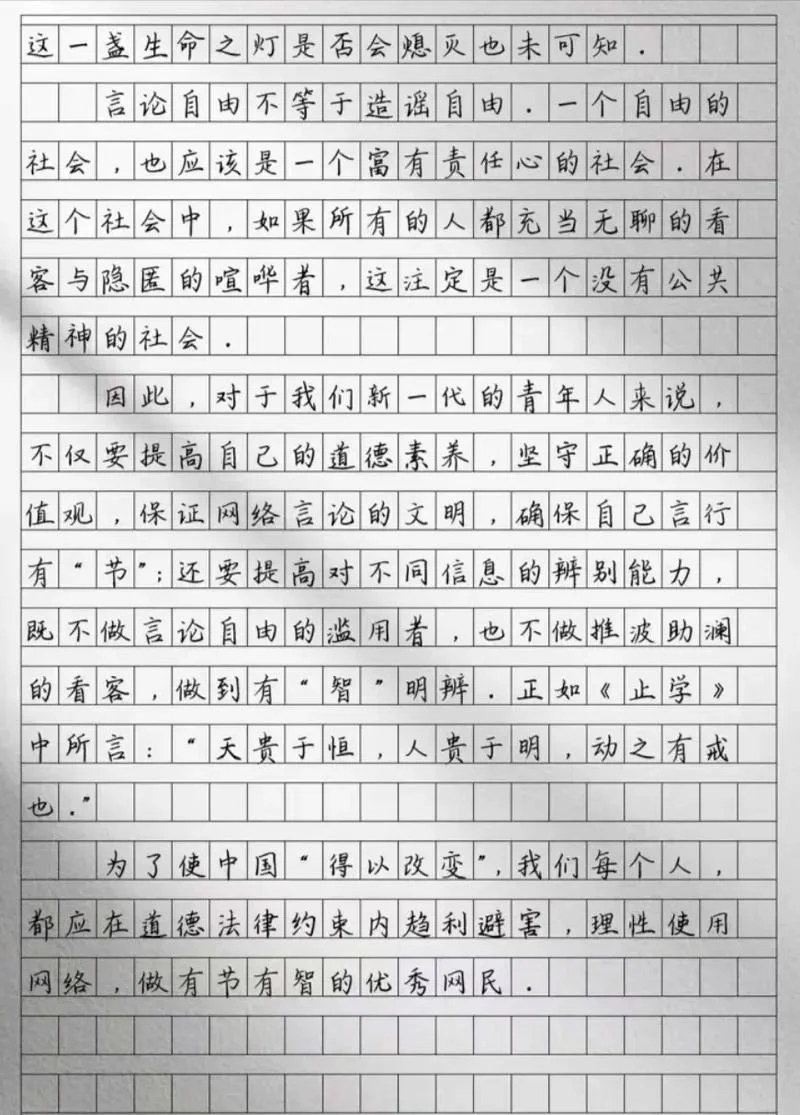 这一盏生命之灯是否会熄灭也未可知.
言论自由不等于造谣自由.一个自由的
社会,也应该是一个富有责任心的社会.在
这个社会中,如果所有的人都充当无聊的看
客与隐匿的喧哗者,这注定是一个没有公共
精神的社会.
因此,对于我们新一代的青年人来说,
不仅要提高自己的道德素养,坚守正确的价
值观,保证网络言论的文明,确保自己言行
有“节”;还要提高对不同信息的辨别能力,
既不做言论自由的滥用者,也不做推波助澜
的看客,做到有“智”明辨.正如《止学》
中所言:“天贵于恒,人贵于明,动之有戒
也.”
为了使中国“得以改变”,我们每个人,
都应在道德法律约束内趋利避害,理性使用
网络,做有节有智的优秀网民.